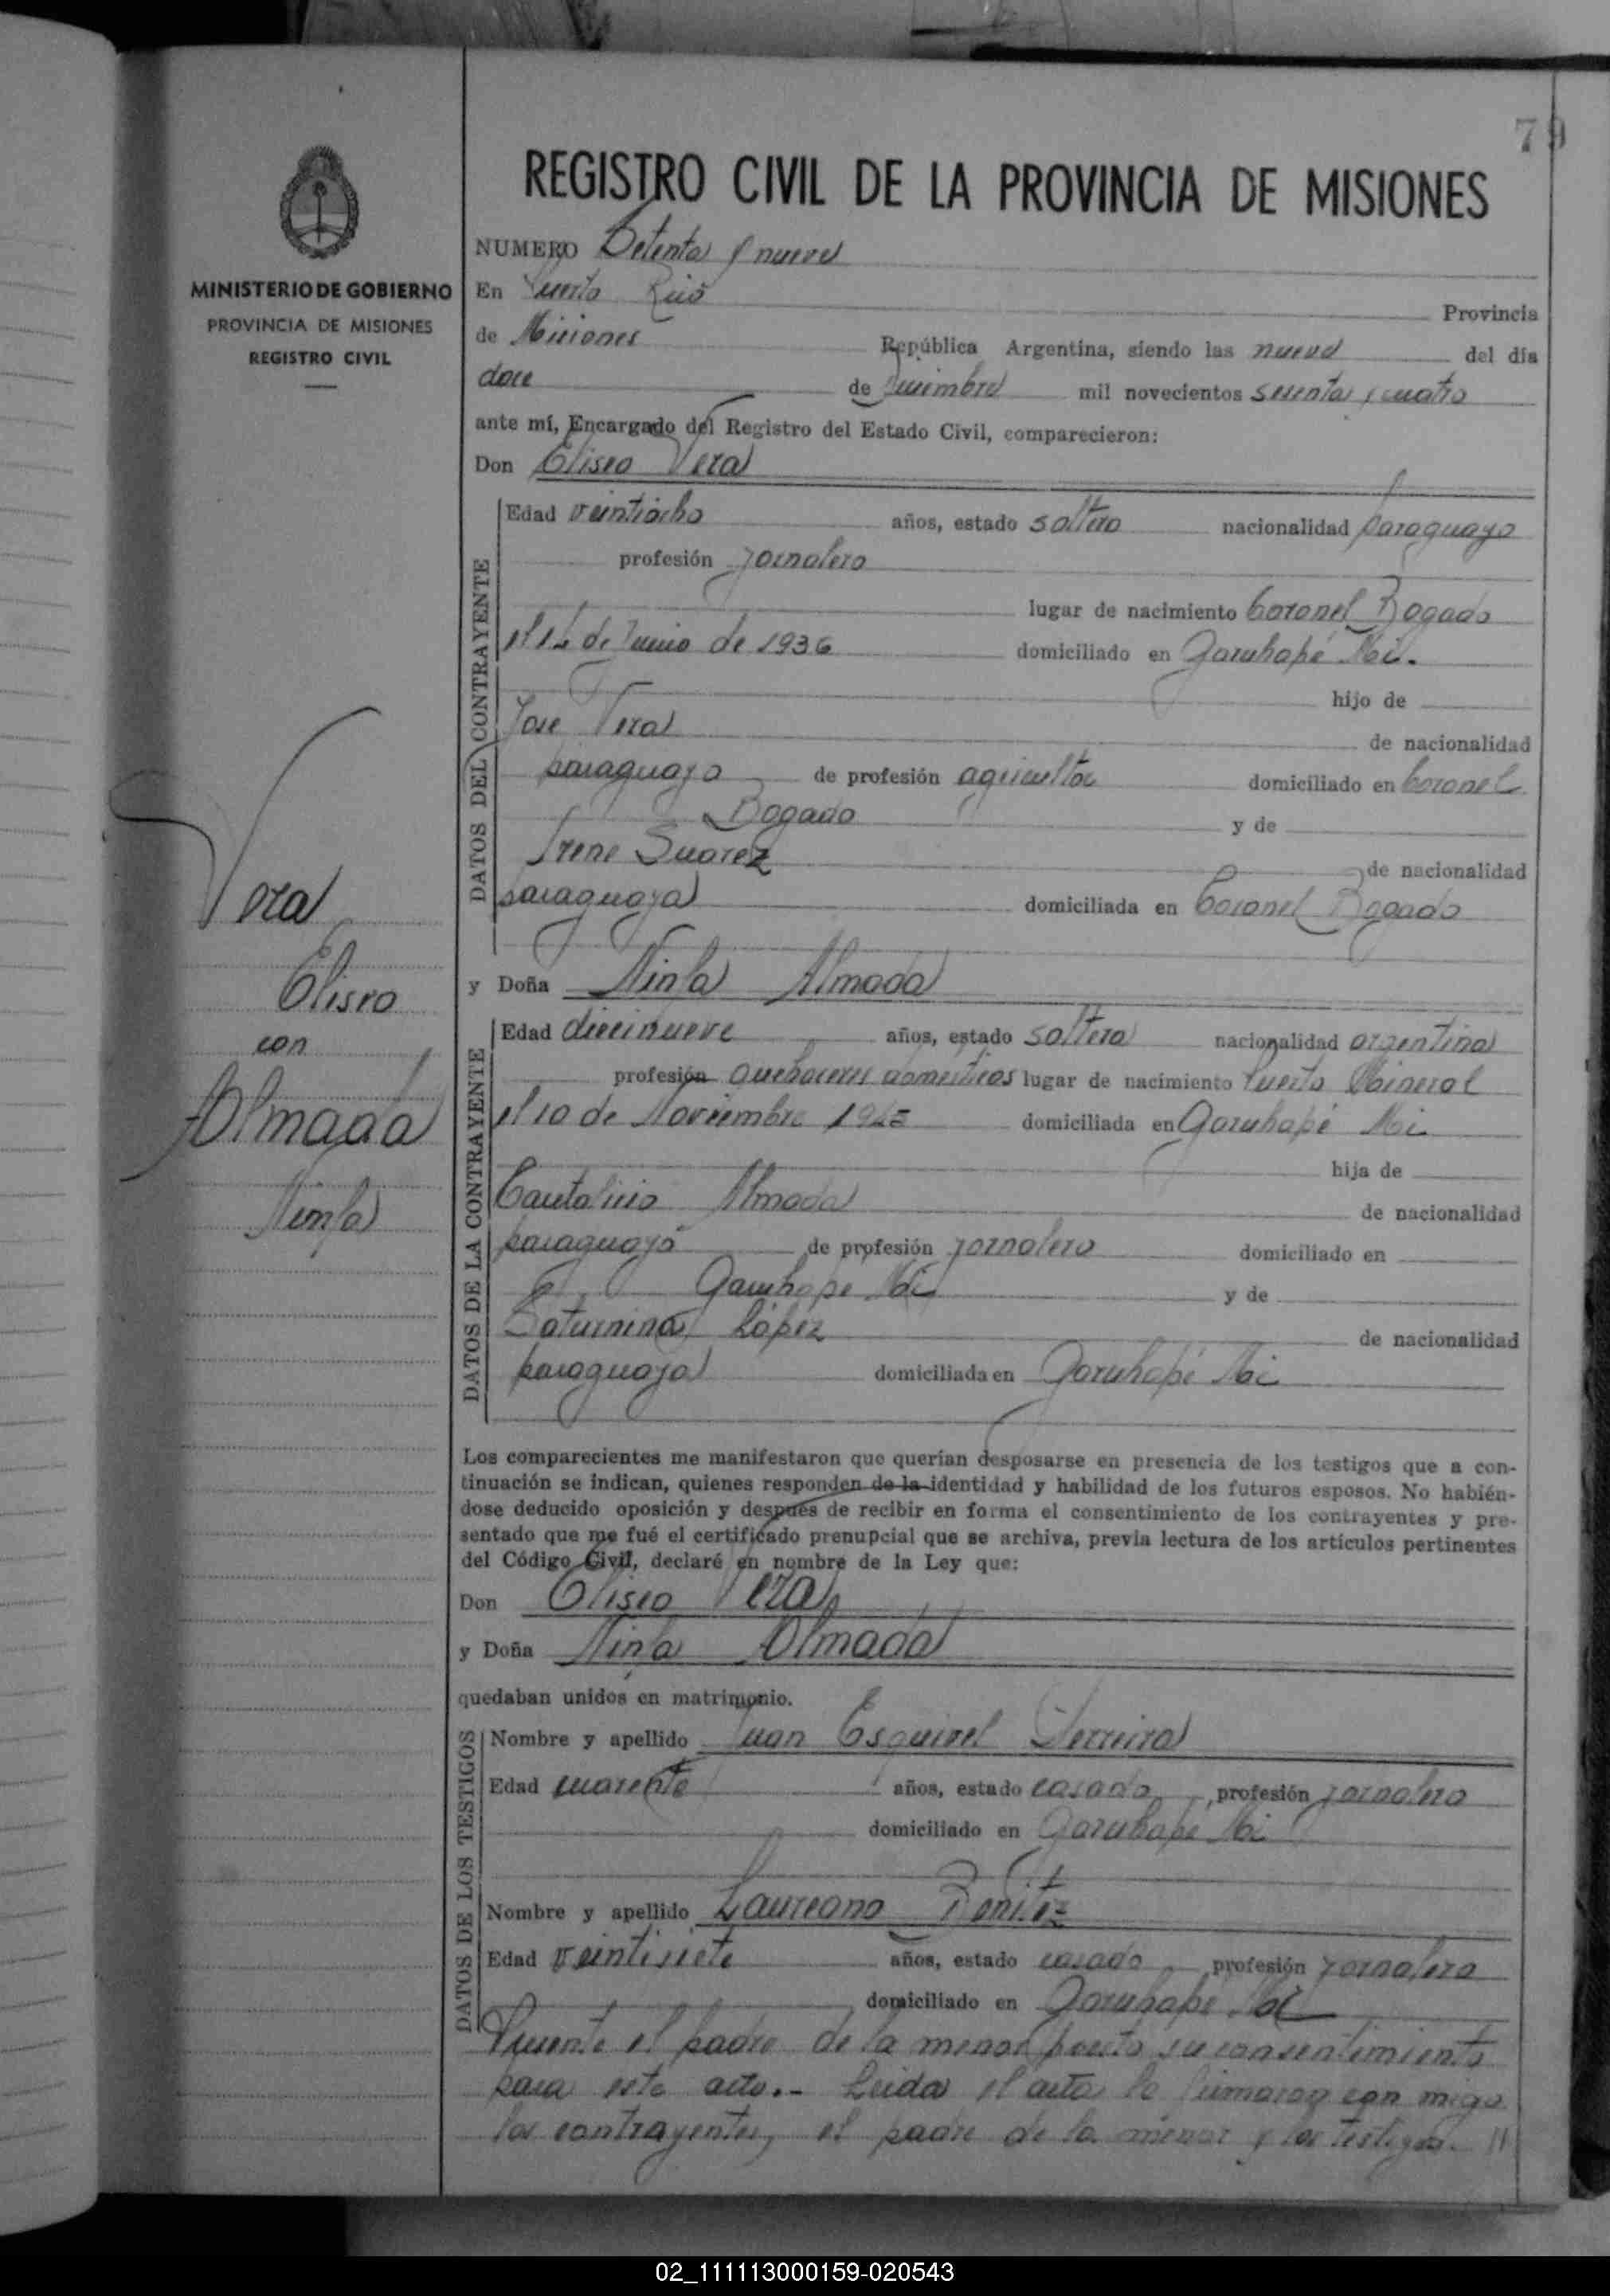 79
REGISTRO CIVIL DE LA PROVINCIA DE MISIONES
MINISTERIO DE GOBIERNO
PROVINCIA DE MISIONES
REGISTRO CIVIL
NUMERO Setenta y nueve
En Puerto Rico
Provincia
de Misiones República Argentina, siendo las nueve del día
doce de Diciembre mil novecientos sesenta y cuatro
ante mí, Encargado del Registro del Estado Civil, comparecieron:
Don Eliseo Vera
DATOS DEL CONTRAYENTE
Edad veintiocho años, estado soltero nacionalidad paraguayo
profesión jornalero
lugar de nacimiento Coronel Bogado
el de Junio de 1936 domiciliado en Garuhapé Mi.
hijo de
Jose Vera de nacionalidad
paraguayo de profesión agricultor domiciliado en Coronel
Bogado y de
Irene Suarez de nacionalidad
paraguaya domiciliada en Coronel Bogado
y Doña Ninfa Almada
DATOS DE LA CONTRAYENTE
Edad diecinueve años, estado soltera nacionalidad argentina
profesión quehaceres domesticos lugar de nacimiento Puerto Mineral
el 10 de Noviembre domiciliada en Garuhapé Mi
hija de
Cautalicio Almada de nacionalidad
paraguayo de profesión jornalero domiciliado en
Garuhape Mi y de
Saturnina López de nacionalidad
paraguaya domiciliada en Garuhapé Mi
Los comparecientes me manifestaron que querían desposarse en presencia de los testigos que a con-
tinuación se indican, quienes responden de la identidad y habilidad de los futuros esposos. No habién-
dose deducido oposición y después de recibir en forma el consentimiento de los contrayentes y pre-
sentado que me fué el certificado prenupcial que se archiva, previa lectura de los artículos pertinentes
del Código Civil, declaré en nombre de la Ley que:
Don Eliseo Vera
y Doña Ninfa Almada
quedaban unidos en matrimonio.
DATOS DE LOS TESTIGOS
Nombre y apellido Juan Esquivel Ferreira
Edad cuarenta años, estado casado, profesión jornalero
domiciliado en Garuhapé Mi
Nombre y apellido Laureano Benitez
Edad veintisiete años, estado casado, profesión jornalero
domiciliado en Garuhapé Mi
Presente el padre de la menor presto su consentimiento
para este acto.- Leida el acta la firmaron con migo
los contrayentes, el padre de la menor y los testigos. //
Vera
Eliseo
con
Almada
Ninfa
02_111113000159-020543